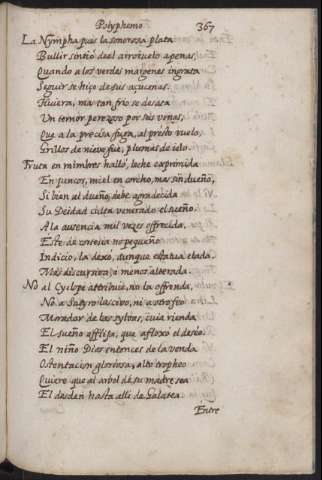 Polyphemo 367
La Nympha pues la sonorosa plata
Bullir sintió del arroiuelo apenas,
Quando a los verdes margenes ingrata
Seguir se hiço de sus açucenas.
Huiera, mas tan frio se desata
Un temor perezoso por sus venas,
Que a la precisa fuga, al presto vuelo,
Grillos de nieve fué, plumas de ielo.
Fruta en mimbres halló, leche exprimida
En juncos, miel en corcho, mas sin dueño,
Si bien al dueño, debe agradecida
Su Deidad culta venerado el sueño.
A la ausencia mil vezes offrecida,
Este de cortesia no pequeño
Indicio, la dexó, aunque estatua elada,
Mas discursiva i menos alterada.
No al Cyclope attribuie, no la offrenda,
No a Satyro lascivo, ni a otro feo
Morador de las sylvas, cuia rienda
El sueño afflija, que afloxó el deseo.
El niño Dios entonces de la venda
Ostentacion gloriosa, alto tropheo
Quiere que al arbol de su madre sea
El desden hasta alli de Galatea.
Entre